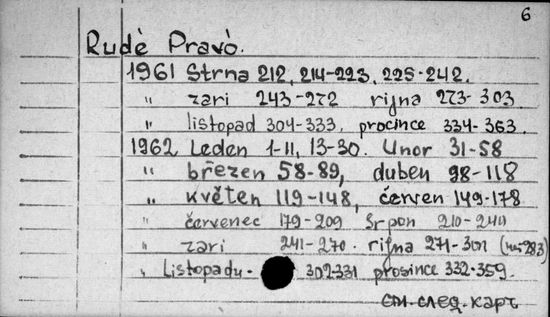 6
Rudè Pravò.
1961 Strna 212, 214-223, 225-242.
" zari 243-272 rijna 273-303.
" listopad 304-333, procince 334-363.
1962 Leden 1-11, 13-30. Unor 31-58
" březen 58-89, duben 98-118
" květen 119-148, červen 149-178
" červenec 179-209 Srpon 210-240
" zari 241-270. rijna 271-301 (283)
" Listopadu - 302-331 prosince 332-359.
см. след. карт